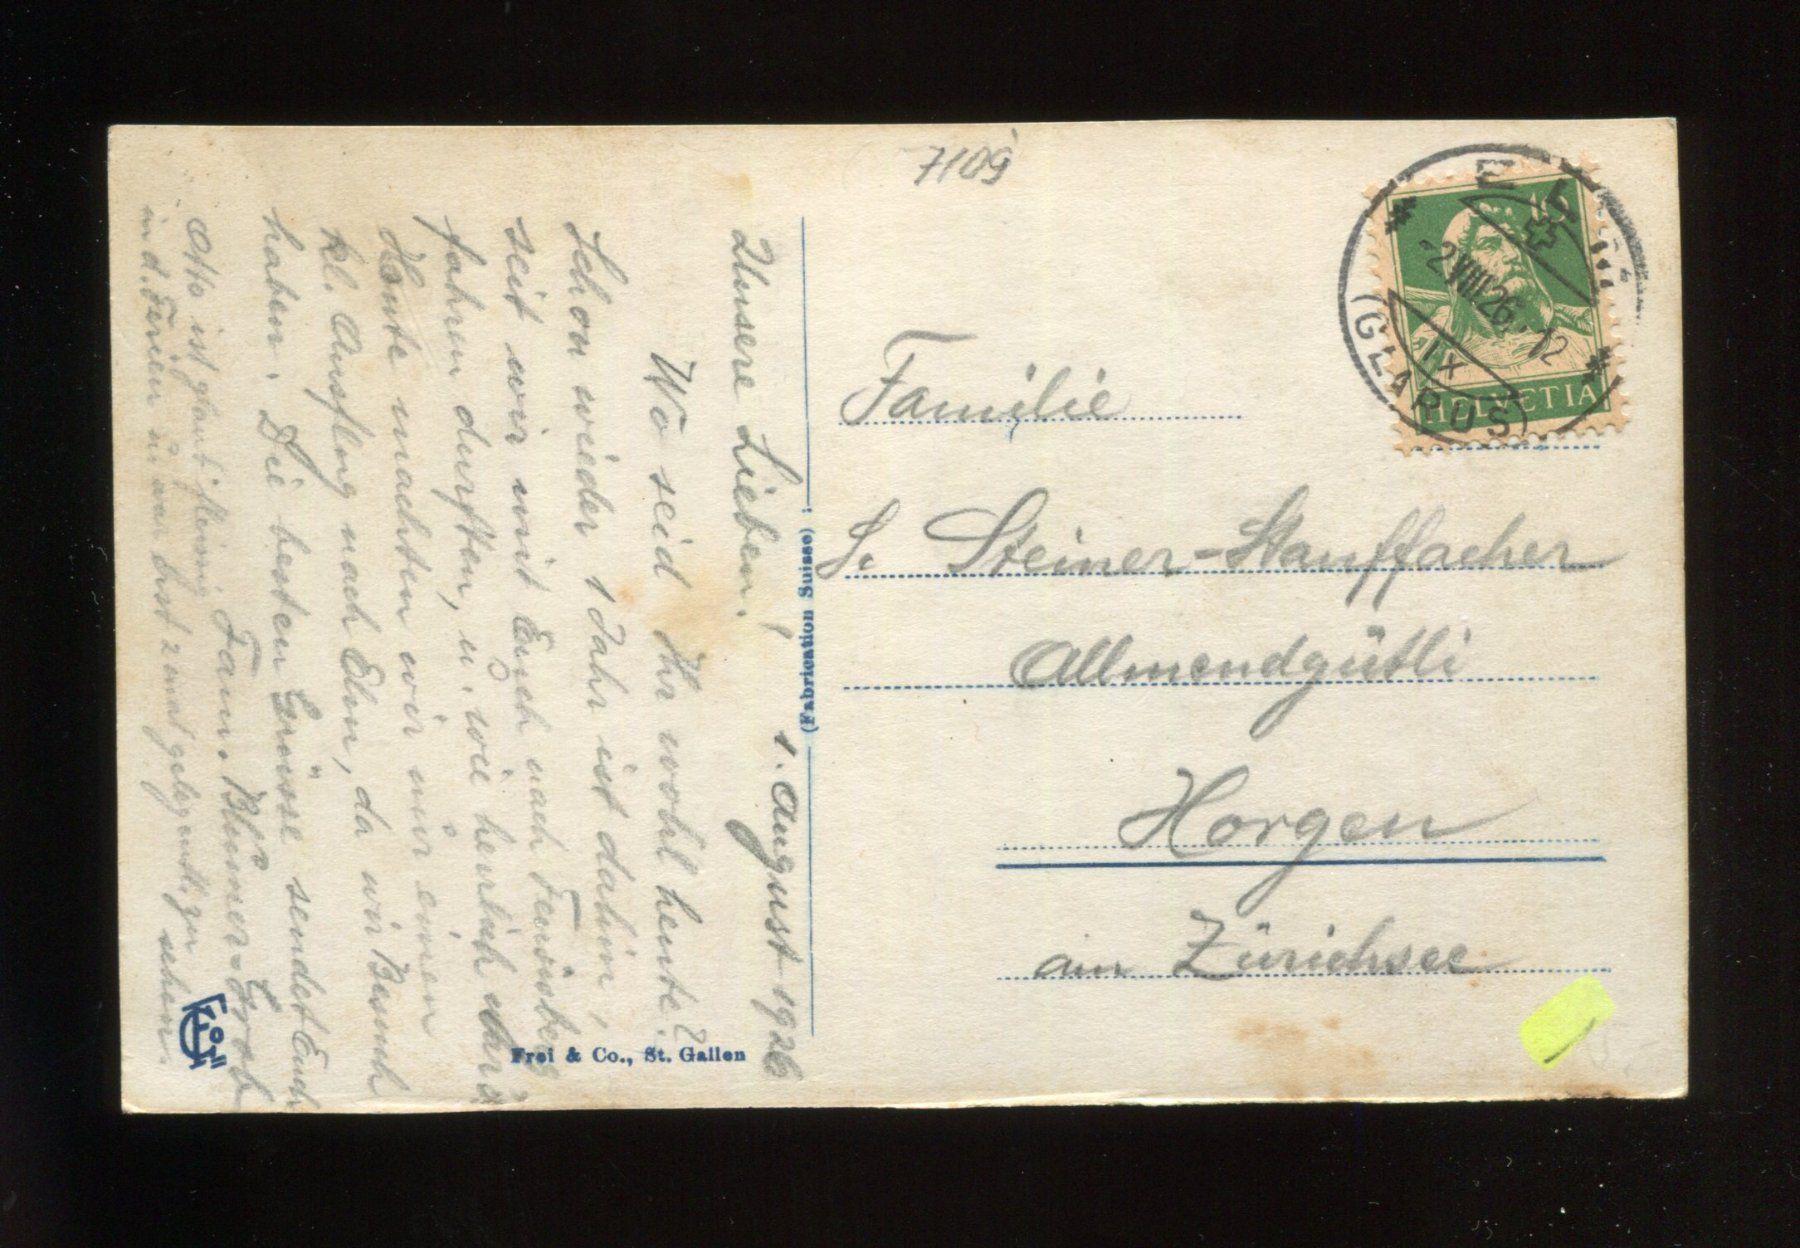 7109
ELM
-2.VIII.26.-12
IX
(GLARUS)
10
HELVETIA
Familie
S. Steiner-Stauffacher
Allmendgütli
Horgen
am Zürichsee
(Fabrication Suisse)
Frei & Co., St. Gallen
1. August 1926
Unsere Lieben!
Wo seid Ihr wohl heute?
Schon wieder 1 Jahr ist dahin,
seit wir mit Euch nach
fahren durften, u. wie herrlich
Heute machten wir nur einen
kl. Ausflug nach Elm, da wir Besuch
haben. Die besten Grüsse sendet Euch
Fam. Blumer-Grob
Otto ist ganz fleissig
in d. Ferien u. war erst 2 mal zu sehen.